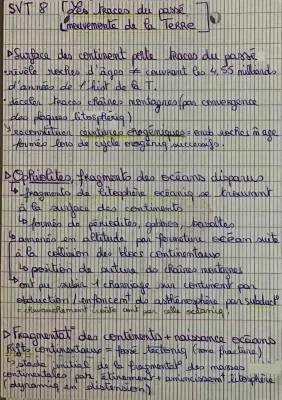 SVT 8 [Les traces du passé
[mouvements de la Terre]
▷Surface des continent porte traces du passé
révèle roches d'âges ≠ couvrant les 4,55 milliards
d'années de l'hist de la T.
• déceler traces chaînes montagnes (par convergence
des plaques litosphériq)
▷reconstitution ceintures orogéniques = ensb roches m̂ âge
formés lors de cycle orogéniq successifs.
▷Ophiolites, fragments des océans disparus
fragments de litosphère océaniq se trouvant
à la surface des continents
↳ formés de péridotites, gabbros, basaltes
amenés en altitude par fermeture océan suite
à la collision des blocs continentaux
↳ position de suture de chaînes montagnes
ont pu subir 1 charriage sur continent par
obduction / enfoncem ds asthénosphère par subduct°
= chevauchement croûte cont par celle océaniq.
▷ Fragmentat° des continents + naissance océans
Rift continentaux = fossé tectoniq (zone fracture)
↳ stade initial de la fragmentat° des masses
continentales par étirement + amincissem litosphère
(dynamiq en distension)